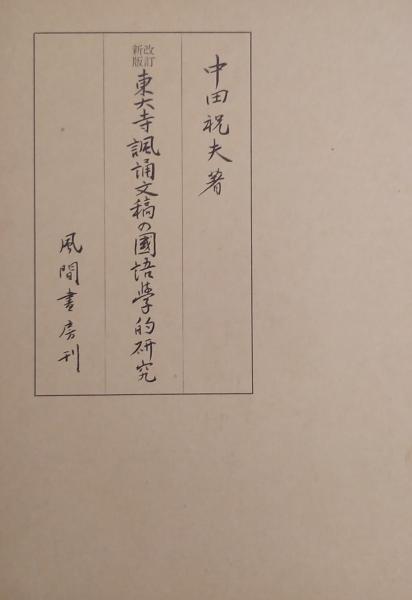 中田祝夫著
改訂新版 東大寺諷誦文稿の國語學的研究
風間書房刊